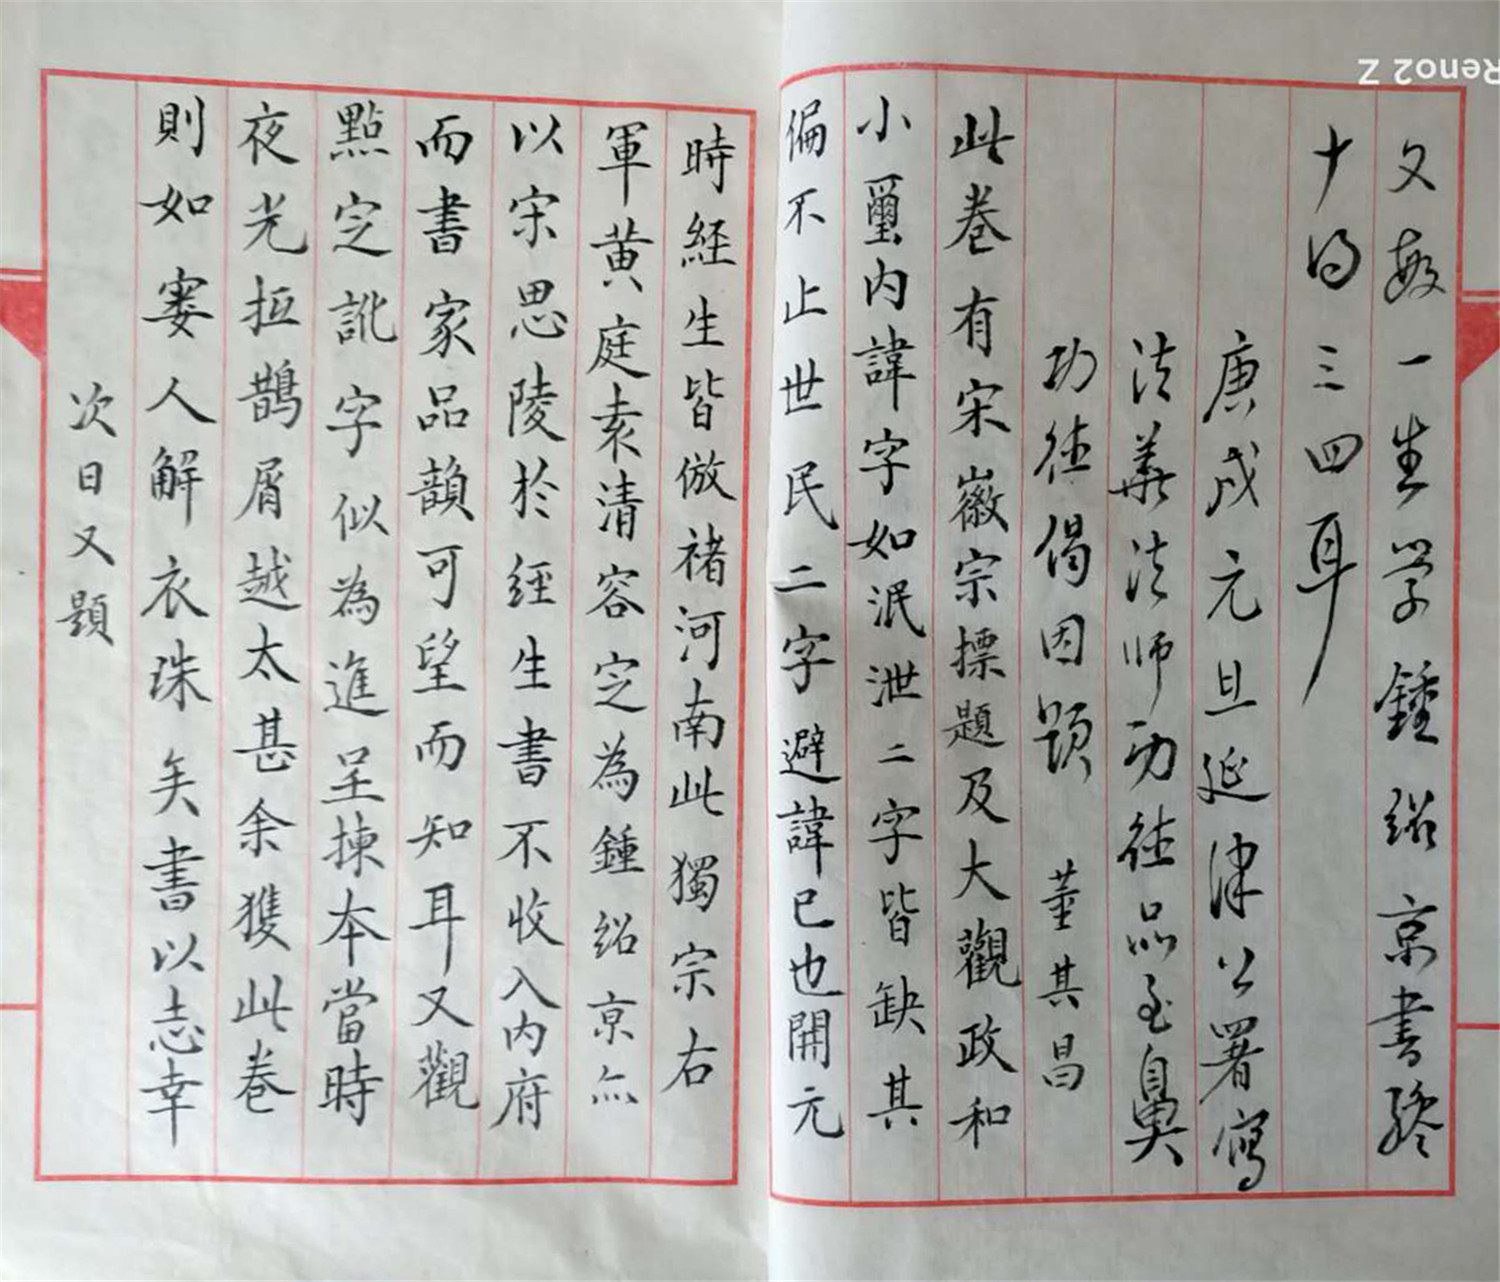 文敏一生学鍾紹京書終
十得三四耳
庚戌元旦延津公署寫
法華法师功德品至鼻
功德偈因題 董其昌
此卷有宋徽宗摽題及大觀政和
小璽内諱字如泯泄二字皆缺其
偏不止世民二字避諱已也開元
時經生皆倣褚河南此獨宗右
軍黄庭素清容定為鍾紹京亦
以宋思陵於經生書不收入内府
而書家品韻可望而知耳又觀
點定訛字似為進呈揀本當時
夜光抵鵲屑越太甚余獲此卷
則如窶人解衣珠矣書以志幸
次日又題
Reno2 Z